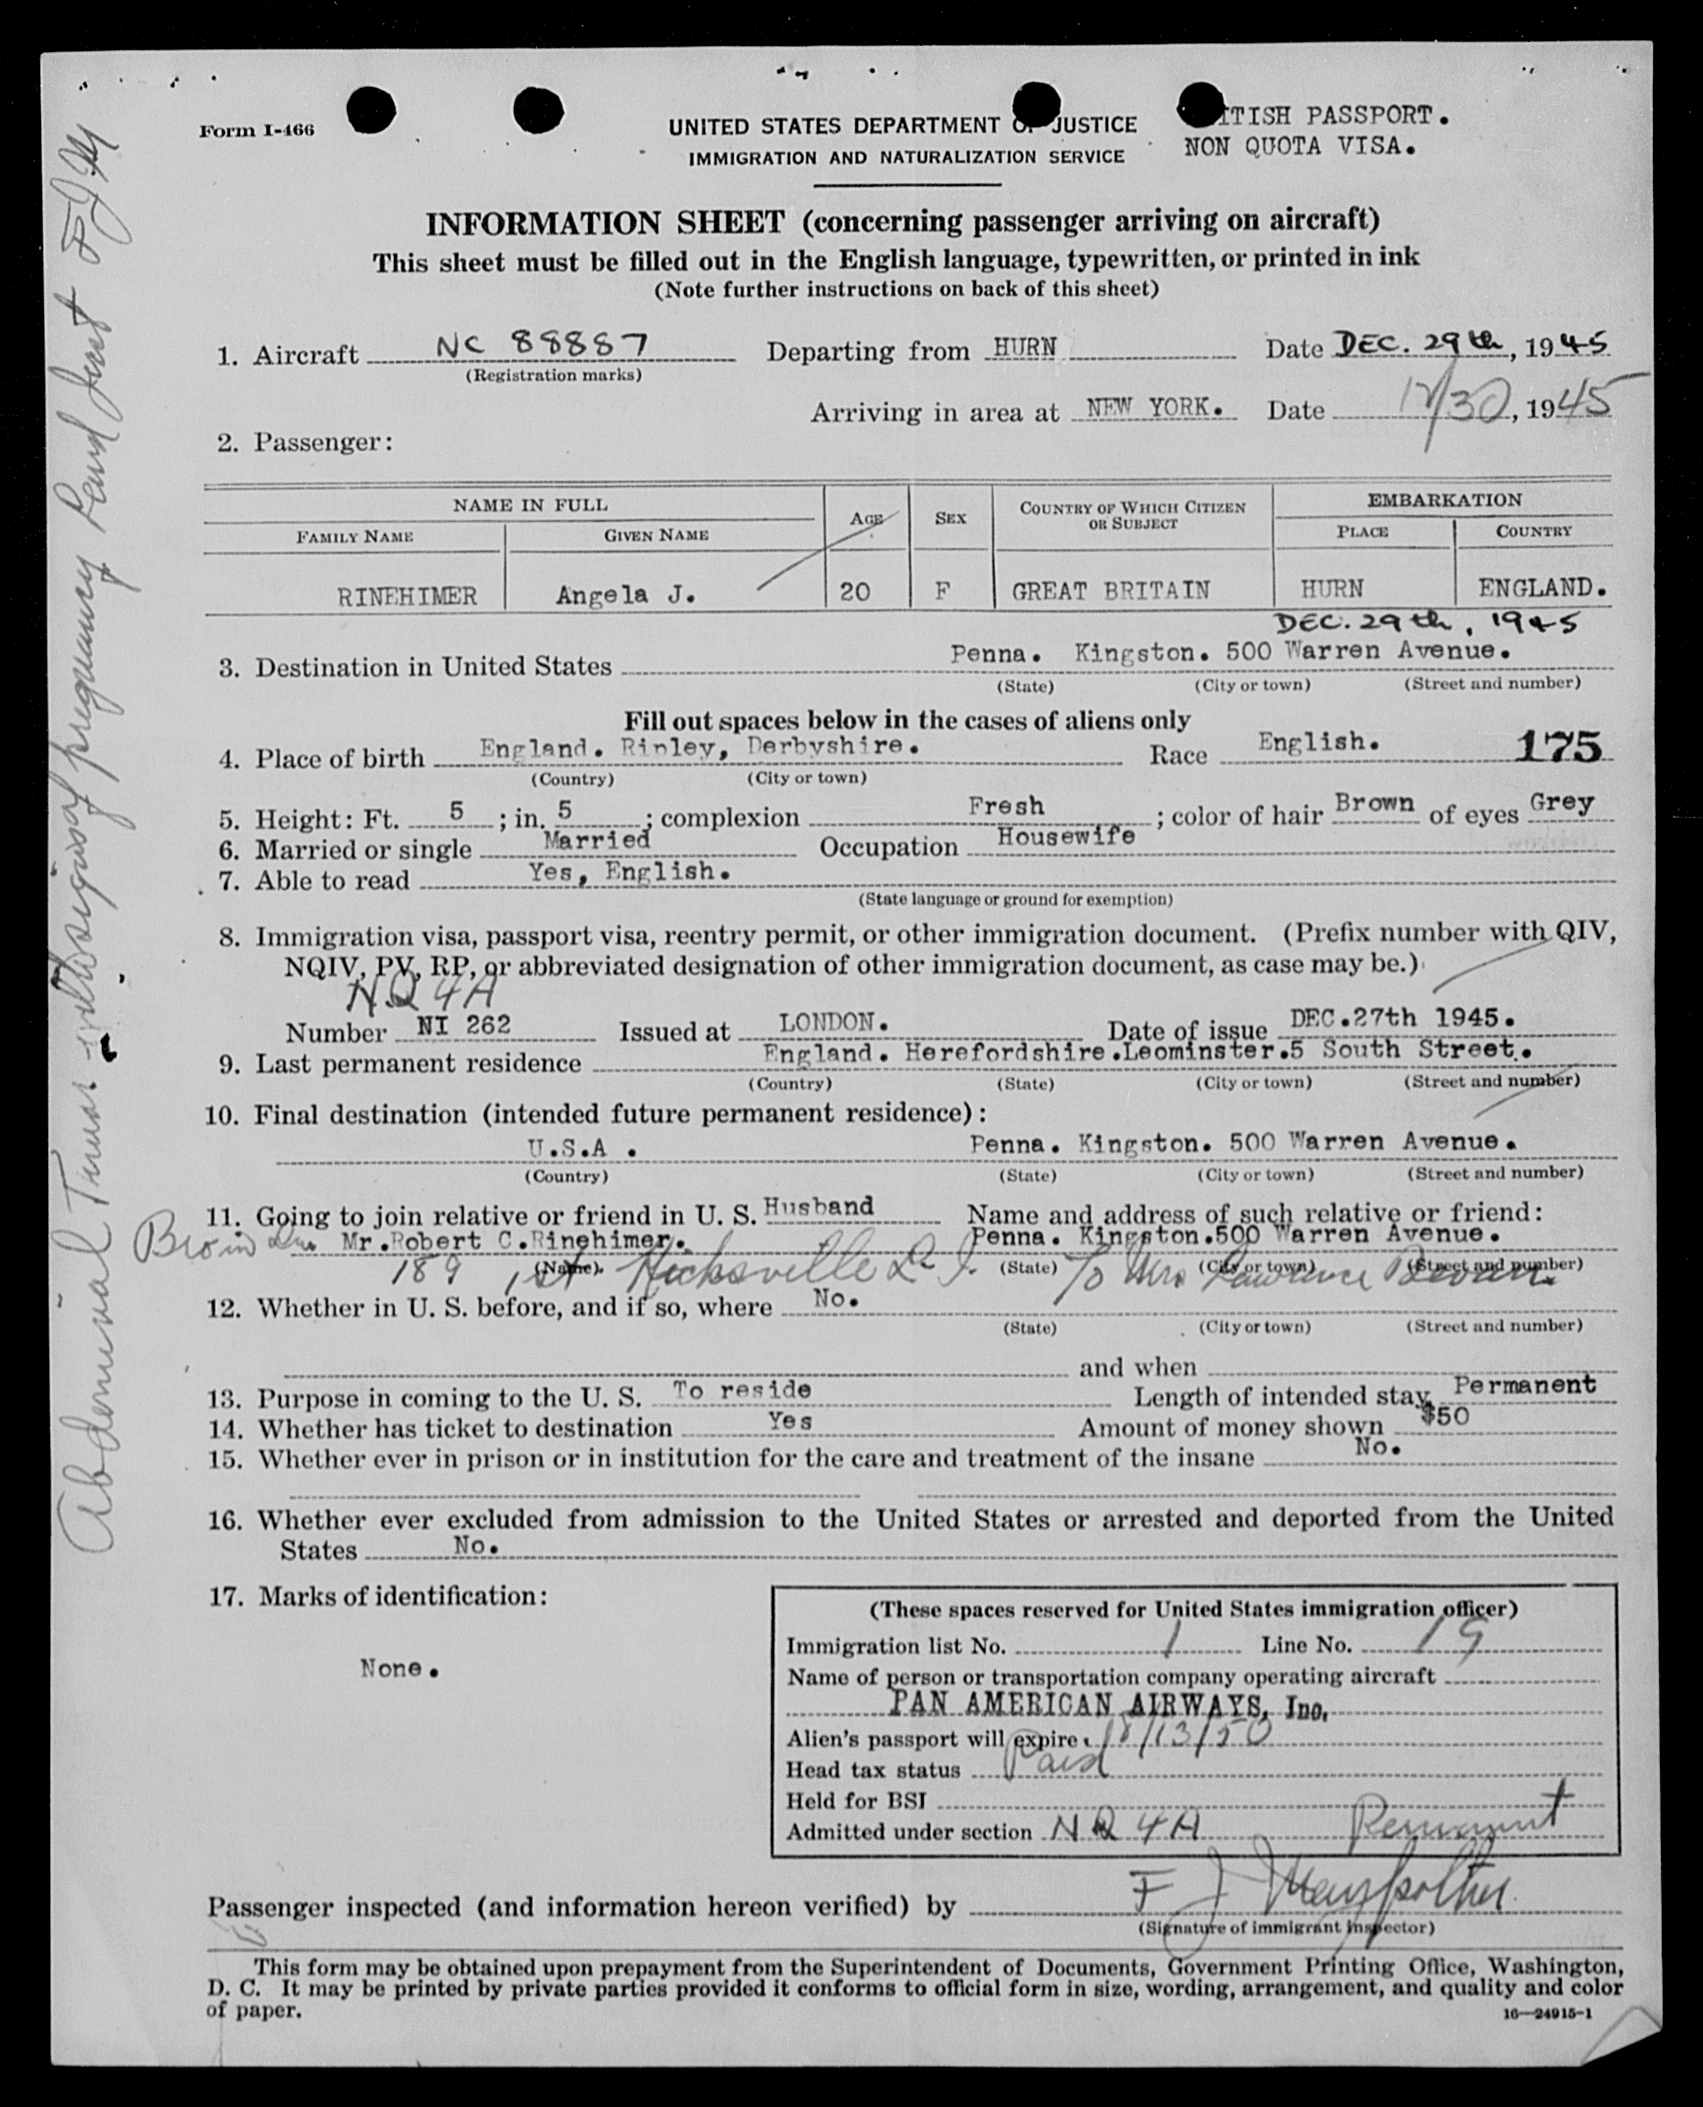 Form I-466
UNITED STATES DEPARTMENT OF JUSTICE
IMMIGRATION AND NATURALIZATION SERVICE
ITISH PASSPORT.
NON QUOTA VISA.
INFORMATION SHEET (concerning passenger arriving on aircraft)
This sheet must be filled out in the English language, typewritten, or printed in ink
(Note further instructions on back of this sheet)
1. Aircraft NC 88887 Departing from HURN Date DEC. 29th, 1945
(Registration marks)
Arriving in area at NEW YORK. Date 12/30, 1945
2. Passenger:
NAME IN FULL AGE SEX COUNTRY OF WHICH CITIZEN OR SUBJECT EMBARKATION
FAMILY NAME GIVEN NAME PLACE COUNTRY
RINEHIMER Angela J. 20 F GREAT BRITAIN HURN ENGLAND.
DEC. 29th, 1945
3. Destination in United States Penna. Kingston. 500 Warren Avenue.
(State) (City or town) (Street and number)
Fill out spaces below in the cases of aliens only
4. Place of birth England. Ripley, Derbyshire. Race English. 175
(Country) (City or town)
5. Height: Ft. 5 ; in. 5 ; complexion Fresh ; color of hair Brown of eyes Grey
6. Married or single Married Occupation Housewife
7. Able to read Yes, English.
(State language or ground for exemption)
8. Immigration visa, passport visa, reentry permit, or other immigration document. (Prefix number with QIV,
NQIV, PV, RP, or abbreviated designation of other immigration document, as case may be.)
N.Q 4A
Number NI 262 Issued at LONDON. Date of issue DEC.27th 1945.
9. Last permanent residence England. Herefordshire.Leominster.5 South Street.
(Country) (State) (City or town) (Street and number)
10. Final destination (intended future permanent residence):
U.S.A . Penna. Kingston. 500 Warren Avenue.
(Country) (State) (City or town) (Street and number)
11. Going to join relative or friend in U. S. Husband Name and address of such relative or friend:
Mr.Robert C.Rinehimer. Penna. Kingston.500 Warren Avenue.
(Name) (State) (City or town) (Street and number)
189 1st Hicksville L. I. To Mrs Lawrence
12. Whether in U. S. before, and if so, where No.
(State) (City or town) (Street and number)
and when
13. Purpose in coming to the U. S. To reside Length of intended stay Permanent
14. Whether has ticket to destination Yes Amount of money shown $50
15. Whether ever in prison or in institution for the care and treatment of the insane No.
16. Whether ever excluded from admission to the United States or arrested and deported from the United
States No.
17. Marks of identification:
None.
(These spaces reserved for United States immigration officer)
Immigration list No. 1 Line No. 19
Name of person or transportation company operating aircraft
PAN AMERICAN AIRWAYS, Inc.
Alien's passport will expire /13/50
Head tax status Paid
Held for BSI
Admitted under section NQ 4A Permanent
Passenger inspected (and information hereon verified) by F J
(Signature of immigrant inspector)
This form may be obtained upon prepayment from the Superintendent of Documents, Government Printing Office, Washington,
D. C. It may be printed by private parties provided it conforms to official form in size, wording, arrangement, and quality and color
of paper.
16—24915-1
Abdominal Tumor - signs of pregnancy FJM